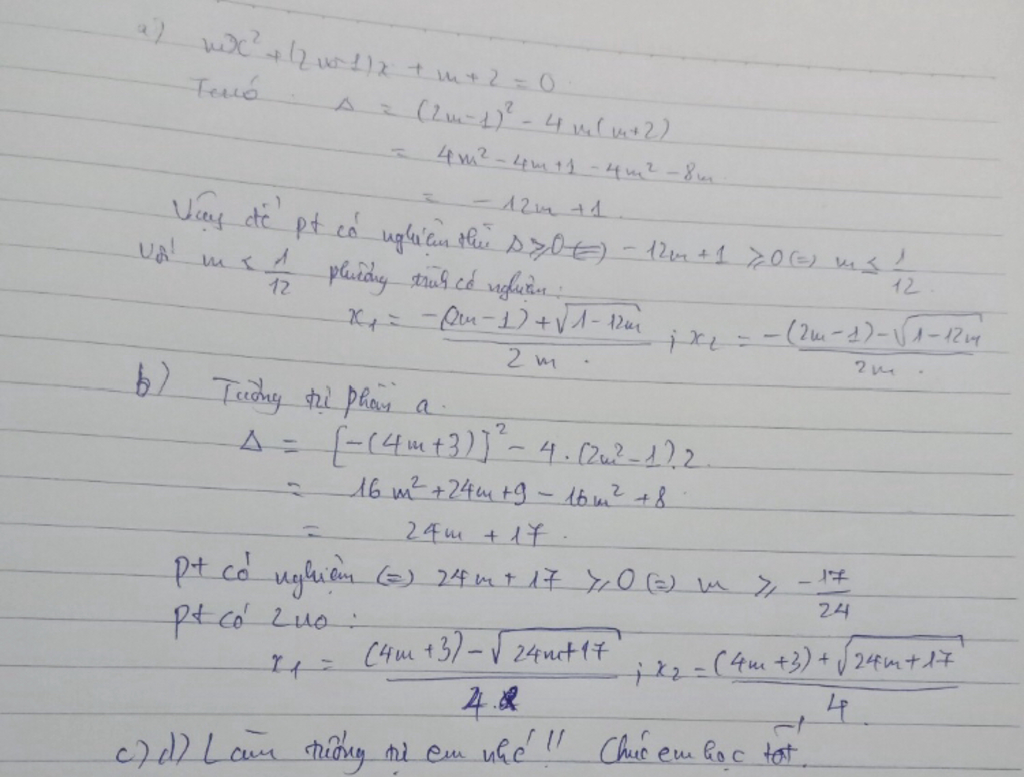 a) mx² + (2m-1)x + m + 2 = 0
Ta có : Δ = (2m-1)² - 4m(m+2)
= 4m² - 4m + 1 - 4m² - 8m
= - 12m + 1.
Vậy để pt có nghiệm thì Δ ≥ 0 (=) - 12m + 1 ≥ 0 (=) m ≤ 1/12.
Với m ≤ 1/12 phương trình có nghiệm:
x₁ = -(2m-1) + √(1-12m) / 2m ; x₂ = -(2m-1) - √(1-12m) / 2m .
b) Tương tự phần a.
Δ = [-(4m+3)]² - 4.(2m²-1).2
= 16m² + 24m + 9 - 16m² + 8
= 24m + 17.
pt có nghiệm (=) 24m + 17 ≥ 0 (=) m ≥ -17/24
pt có 2 no :
x₁ = (4m+3) - √(24m+17) / 4 ; x₂ = (4m+3) + √(24m+17) / 4.
c) d) Làm tương tự em nhé !! Chúc em học tốt.